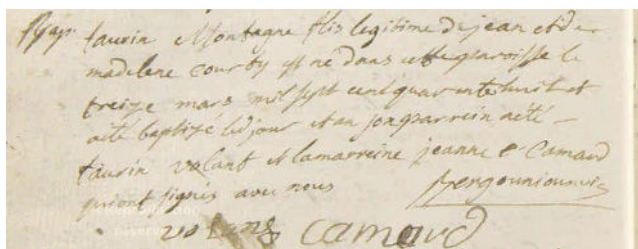 taurin Montagne fils legitime de jean et de
madelene courby est ne dans cette paroisse le
treize mars mil sept cent quarante huit et
a été baptizé led jour et an son parrein a été
taurin volant et la marreine jeanne Camard
qui ont signés avec nous
volant Camard